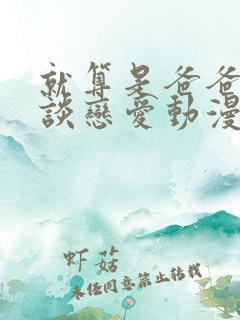 就算是爸爸
談戀愛動漫
虾菇
未经同意禁止转载